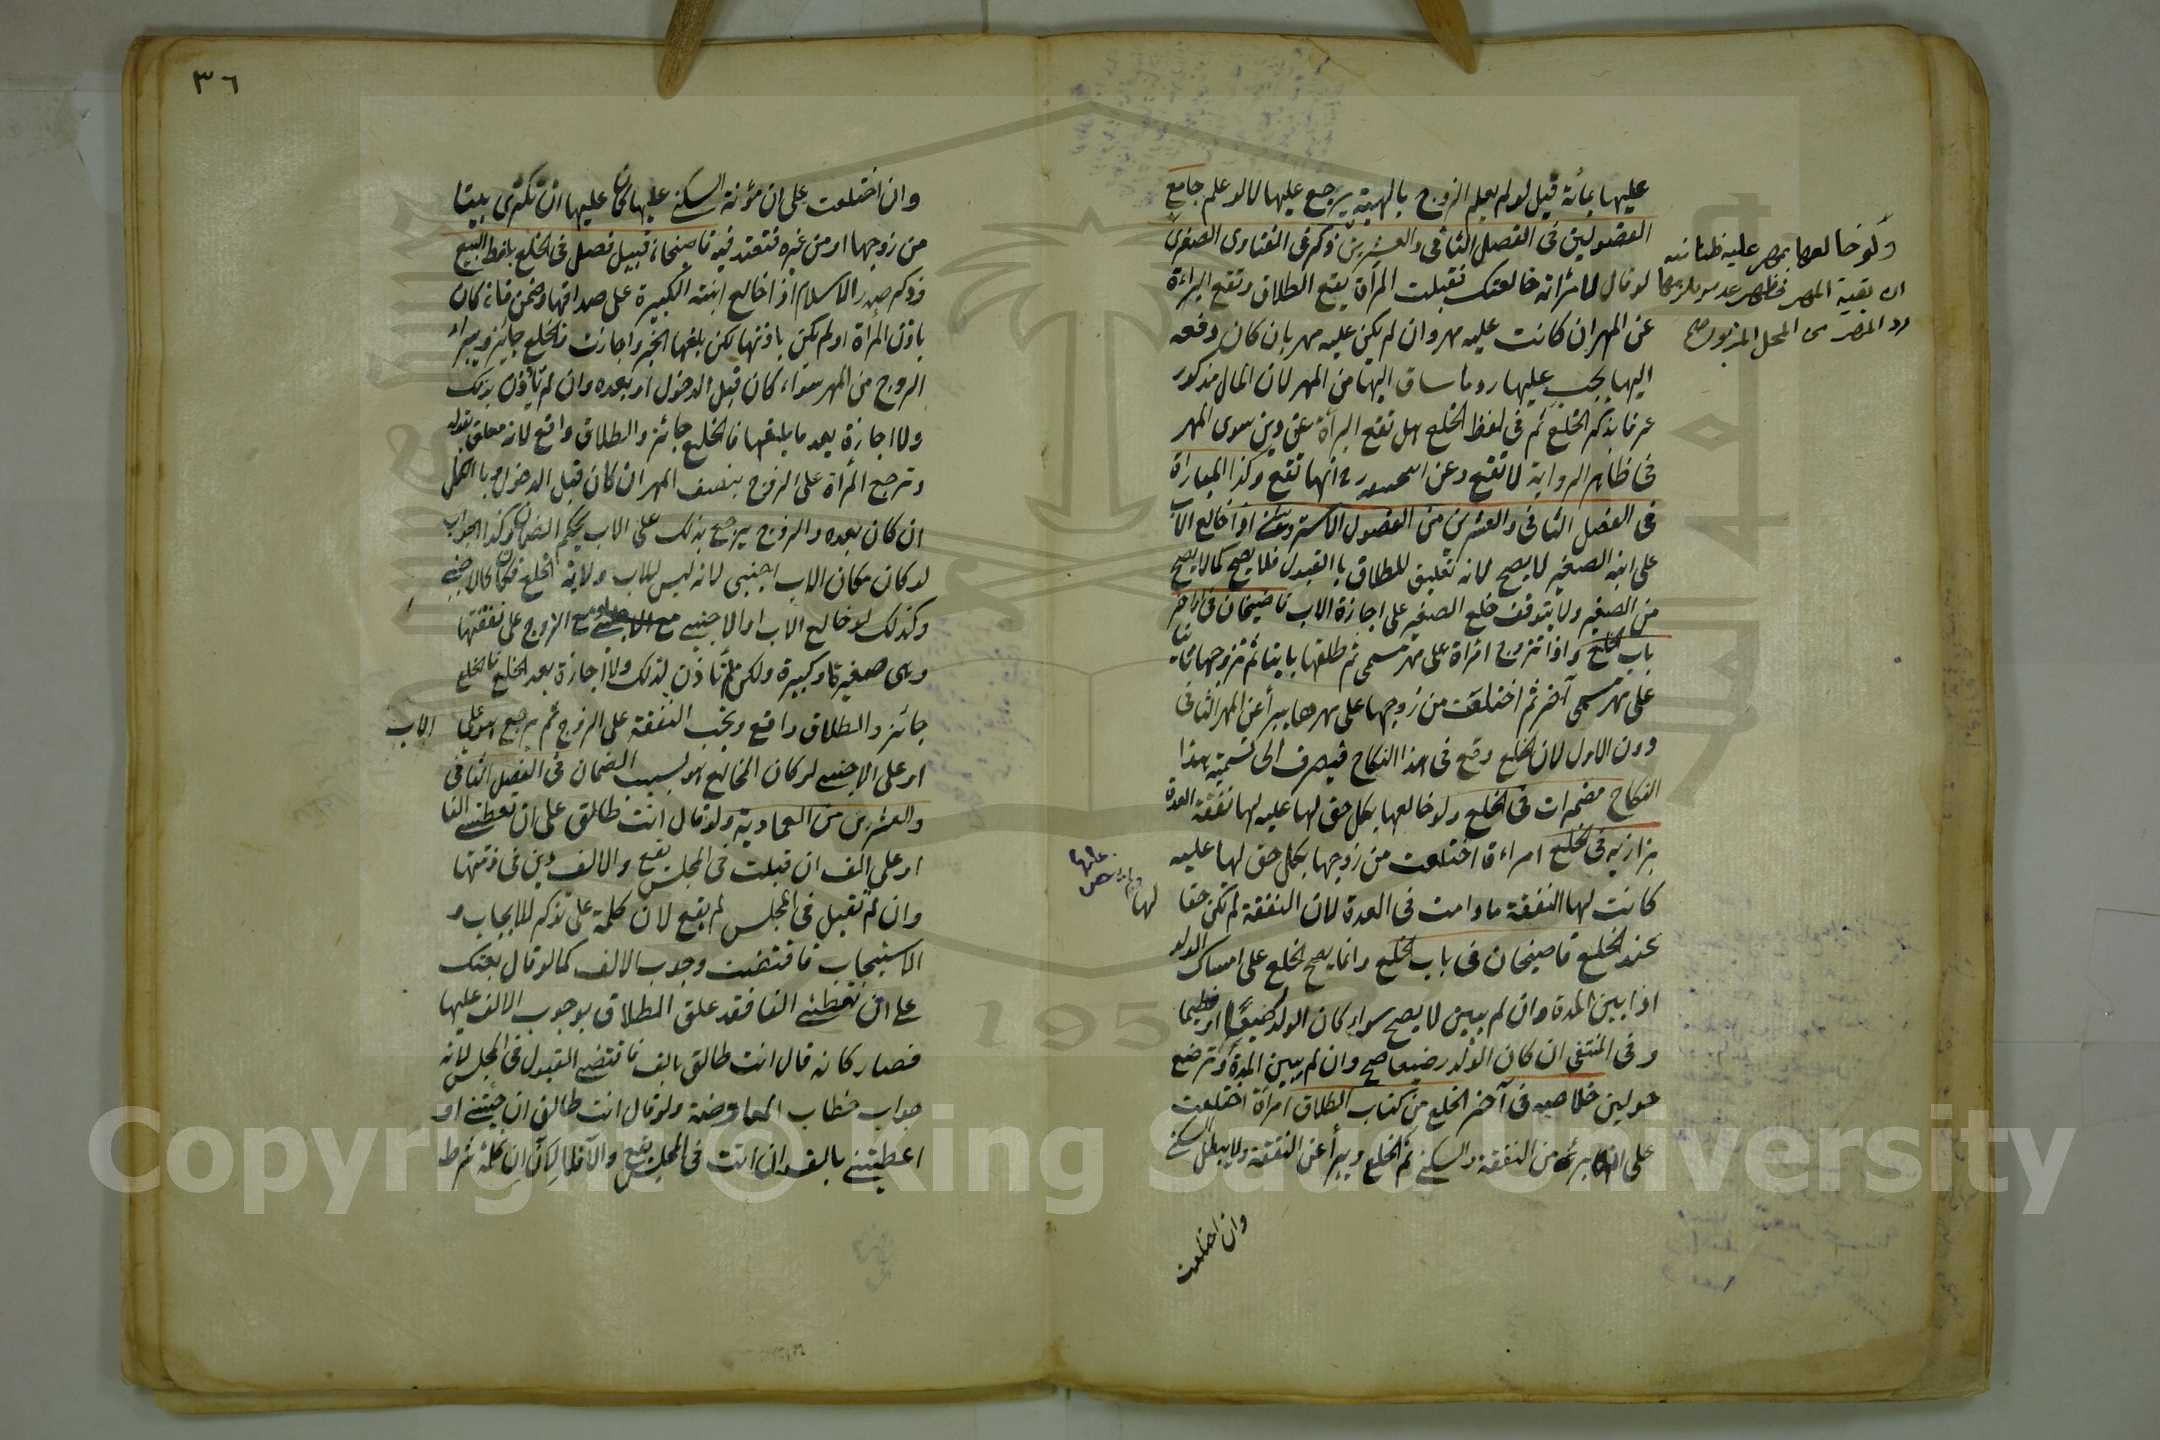 عليها بمائة قيل لو لم يعلم الزوج بالهبة يرجع عليها لا لو علم جامع
الفصولين فى الفصل الثانى والعشرين ذكر فى الفتاوى الصغرى
لو قال لامرأته خالعتك فقبلت المرأة يقع الطلاق وتقع البراءة
عن المهر ان كانت عليه مهر وان لم يكن عليه مهر بان كان دفعه
اليها يجب عليها رد ما ساق اليها من المهر لان المال مذكور
عرفا بذكر الخلع ثم فى لفظ الخلع هل تقع البرأة عن دين سوى المهر
فى ظاهر الرواية لا تقع وعن ابيحنيفه رح انها تقع وكذا المبارأة
فى الفصل الثانى والعشرين من الفصول الاستروشنى اذا خالع الاب
على ابنه الصغير لا يصح لانه تعليق للطلاق بالقبول فلا يصح كما لا يصح
من الصغير ولا يتوقف خلع الصغير على اجازة الاب قاضيخان فى اواخر
باب الخلع واذا تزوج امرأة على مهر مسمى ثم طلقها باينا ثم تزوجها ثانيا
على مهر مسمى آخر ثم اختلعت من زوجها على مهرها يبرأ عن المهر الثانى
دون الاول لان الخلع وقع فى هذا النكاح فيصرف الى تسمية هذا
النكاح مضمرات فى الخلع ولو خالعها بكل حق لها عليه لها نفقة العدة
بزازيه فى الخلع امراءة اختلعت من زوجها بكل حق لها عليه
كانت لها النفقة ما دامت فى العدة لان النفقة لم تكن حقا
عند الخلع قاضيخان فى باب الخلع وانما يصح الخلع على امساك الولد
اذا بين المدة وان لم يبين لا يصح سواء كان الولد رضيعا او فطيما
وفى المنتقى ان كان الولد رضيعا صح وان لم يبين المدة وترضع
حولين خلاصه فى آخر الخلع من كتاب الطلاق امرأة اختلعت
على ان يبرئ من النفقة والسكنى تم الخلع ويبرأ عن النفقة ولا يبطل السكنى
وان اختلعت
ولو خالعها بمهر عليه ظنا منه
ان بقية المهر فظهر عدمه يلزمها
رد المهر من المحل المزبور صح
لها
وان اختلعت على ان مؤنة السكنى عليها كان عليها ان تكترى بيتا
من زوجها او من غيره فتعتد فيه قاضيخان قبيل فصل فى الخلع بلفظ البيع
وذكر صدر الاسلام اذا خالع ابنته الكبيرة على صداقها وضمن فان كان
باذن المرأة او لم يكن باذنها لكن بلغها الخبر واجازت فالخلع جائز ويبراء
الزوج من المهر سواء كان قبل الدخول او بعده وان لم تأذن بذلك
ولا اجازة بعد ما بلغها فالخلع جائز والطلاق واقع لانه معلق بقوله
وترجع المرأة على الزوج بنصف المهر ان كان قبل الدخول وبالكل
ان كان بعده والزوج يرجع بذلك على الاب بحكم الضمان وكذا الجواب
لو كان مكان الاب اجنبى لانه ليس للاب ولاية الخلع فكان كالاجنبى
وكذلك لو خالع الاب او الاجنبى مع الزوج على نفقتها
وهى صغيرة او كبيرة ولكن لم تأذن لذلك ولا اجازة بعد الخلع فالخلع
جائز والطلاق واقع ويجب النفقة على الزوج ثم يرجع هو على
الاب
او على الاجنبى لو كان المخالع هو بسبب الضمان فى الفصل الثانى
والعشرين من العمادية ولو قال انت طالق على ان تعطينى الفا
او على الف ان قبلت فى المجلس يقع والالف دين فى ذمتها
وان لم تقبل فى المجلس لم يقع لان كلمة على تذكر للايجاب و
الاستيجاب فاقتضت وجوب الالف كما لو قال بعتك
على ان تعطينى الفا فقد علق الطلاق بوجوب الالف عليها
فصار كانه قال انت طالق بالف فاقتضى القبول فى المجلس لانه
جواب خطاب المعاوضة ولو قال انت طالق ان جئتنى او
اعطيتنى بالف ان اتت فى المجلس يقع والا فلا لان ان كلمة شرط
٣٦